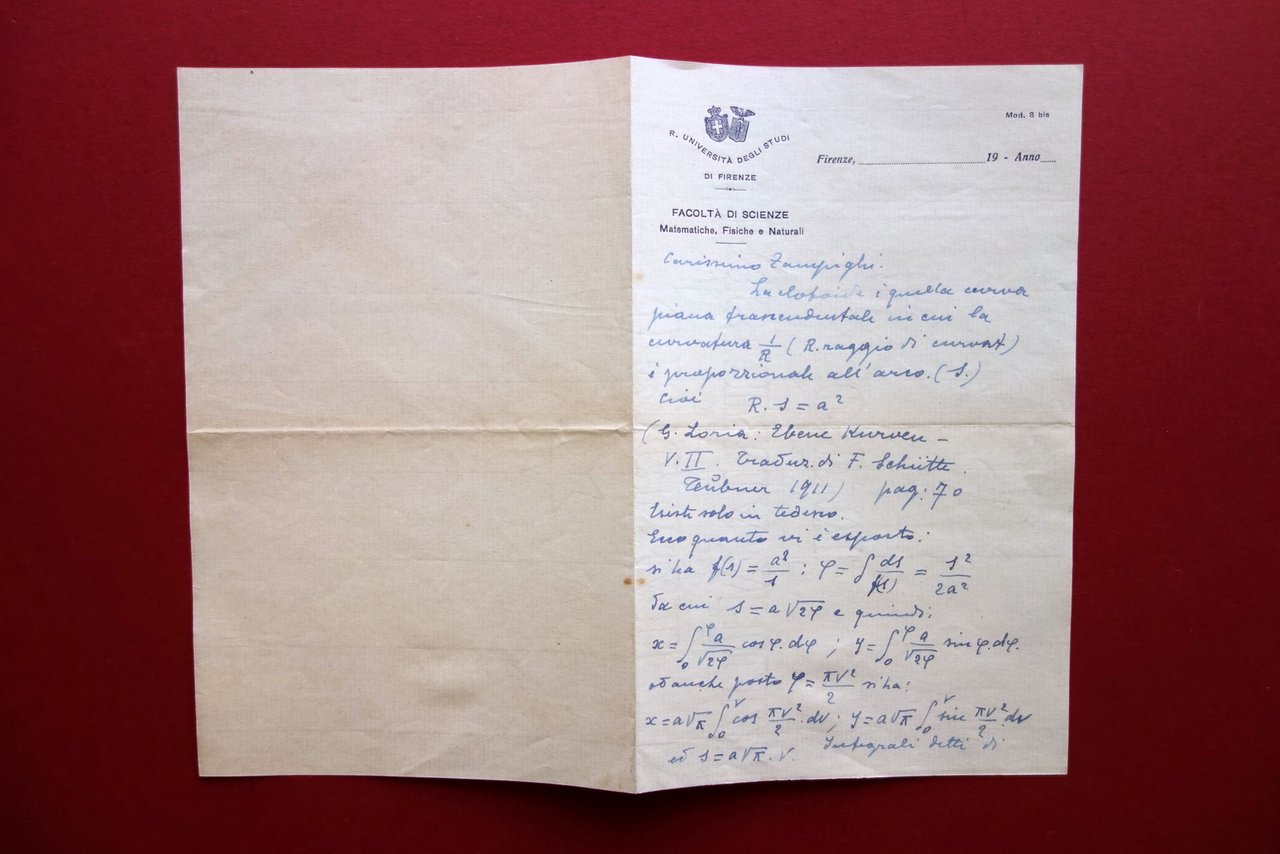 Mod. 8 bis
R. UNIVERSITÀ DEGLI STUDI
DI FIRENZE
Firenze, 19 - Anno
FACOLTÀ DI SCIENZE
Matematiche, Fisiche e Naturali
Carissimo Zampighi.
La clotoide è quella curva
piana trascendentale in cui la
curvatura 1/R (R. raggio di curvat)
è proporzionale all'arco. (S.)
Cioè R. s = a²
(G. Loria: Ebene Kurven -
V. II. Tradur. di F. Schütte.
Teubner 1911) pag: 70
Esiste solo in tedesco.
Ecco quanto vi è esposto:
si ha f(s) = a²/s ; φ = ∫ ds/f(s) = s²/2a²
da cui s = a√2φ e quindi;
x = ∫₀^φ a/√2φ cos φ. dφ ; y = ∫₀^φ a/√2φ sin φ. dφ.
od anche posto φ = πv²/2 si ha:
x = a√π ∫₀^v cos πv²/2 . dv ; y = a√π ∫₀^v sin πv²/2 . dv
ed s = a√π . v. Integrali detti di